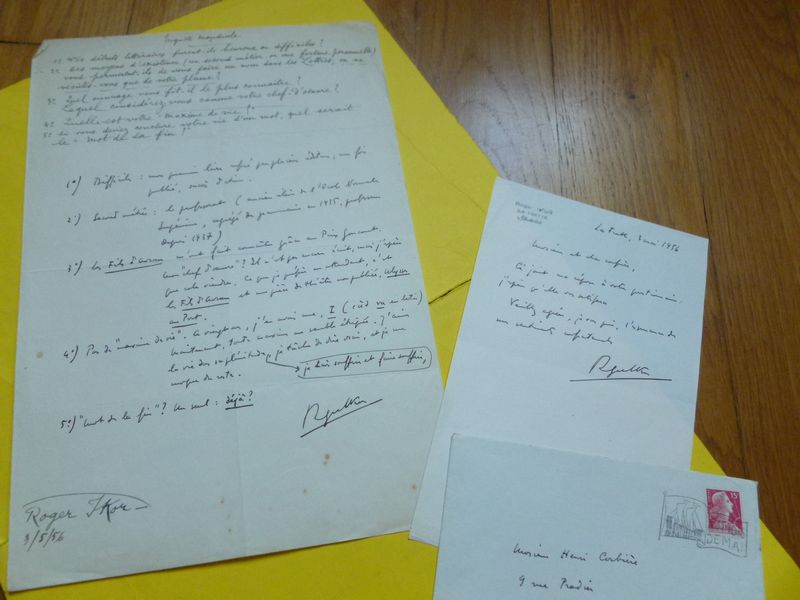 Enquête mondiale
1º Vos débuts littéraires furent-ils heureux ou difficiles ?
2º Vos moyens d'existence (un second métier ou une fortune personnelle)
vous permettent-ils de vous faire un nom dans les Lettres, ou ne
vivez-vous que de votre plume ?
3º Quel ouvrage vous fit-il le plus connaître ?
Lequel considérez-vous comme votre chef-d'œuvre ?
4º Quelle est votre "maxime de vie" ?
5º Si vous deviez conclure votre vie d'un mot, quel serait
le "mot de la fin" ?
1º) Difficile : mon premier livre refusé par plusieurs éditeurs, une fois
publié,
2º) Second métier : le professorat (ancien élève de l'Ecole Normale
Supérieure, agrégé de grammaire en 1935, professeur
depuis 1937)
3º) Les Fils d'Avrom m'ont fait connaître grâce au Prix Goncourt.
Mon "chef d'œuvre" ? Il n'est pas encore écrit, mais j'espère
que cela viendra. Ce que je préfère en attendant, c'est
les Fils d'Avrom et une pièce de théâtre non publiée, Ulysse
au Port.
4º) Pas de "maxime de vie". A vingt ans, j'en avais une, I (càd va en latin)
Maintenant, toute maxime me semble étriquée. J'aime
la vie dans sa plénitude, je tâche de dire vrai, et je me
moque du reste.
je hais souffrir et faire souffrir,
5º) "Mot de la fin" ? Un seul : déjà ?
Roger Ikor
3/5/56
La Frette, 3 mai 1956
Monsieur et cher confrère,
Ci joint ma réponse à votre questionnaire,
j'espère qu'elle vous satisfera.
Veuillez agréer, je vous prie, l'assurance de
mes sentiments
15
Monsieur Henri Corbière
9 rue Pradier